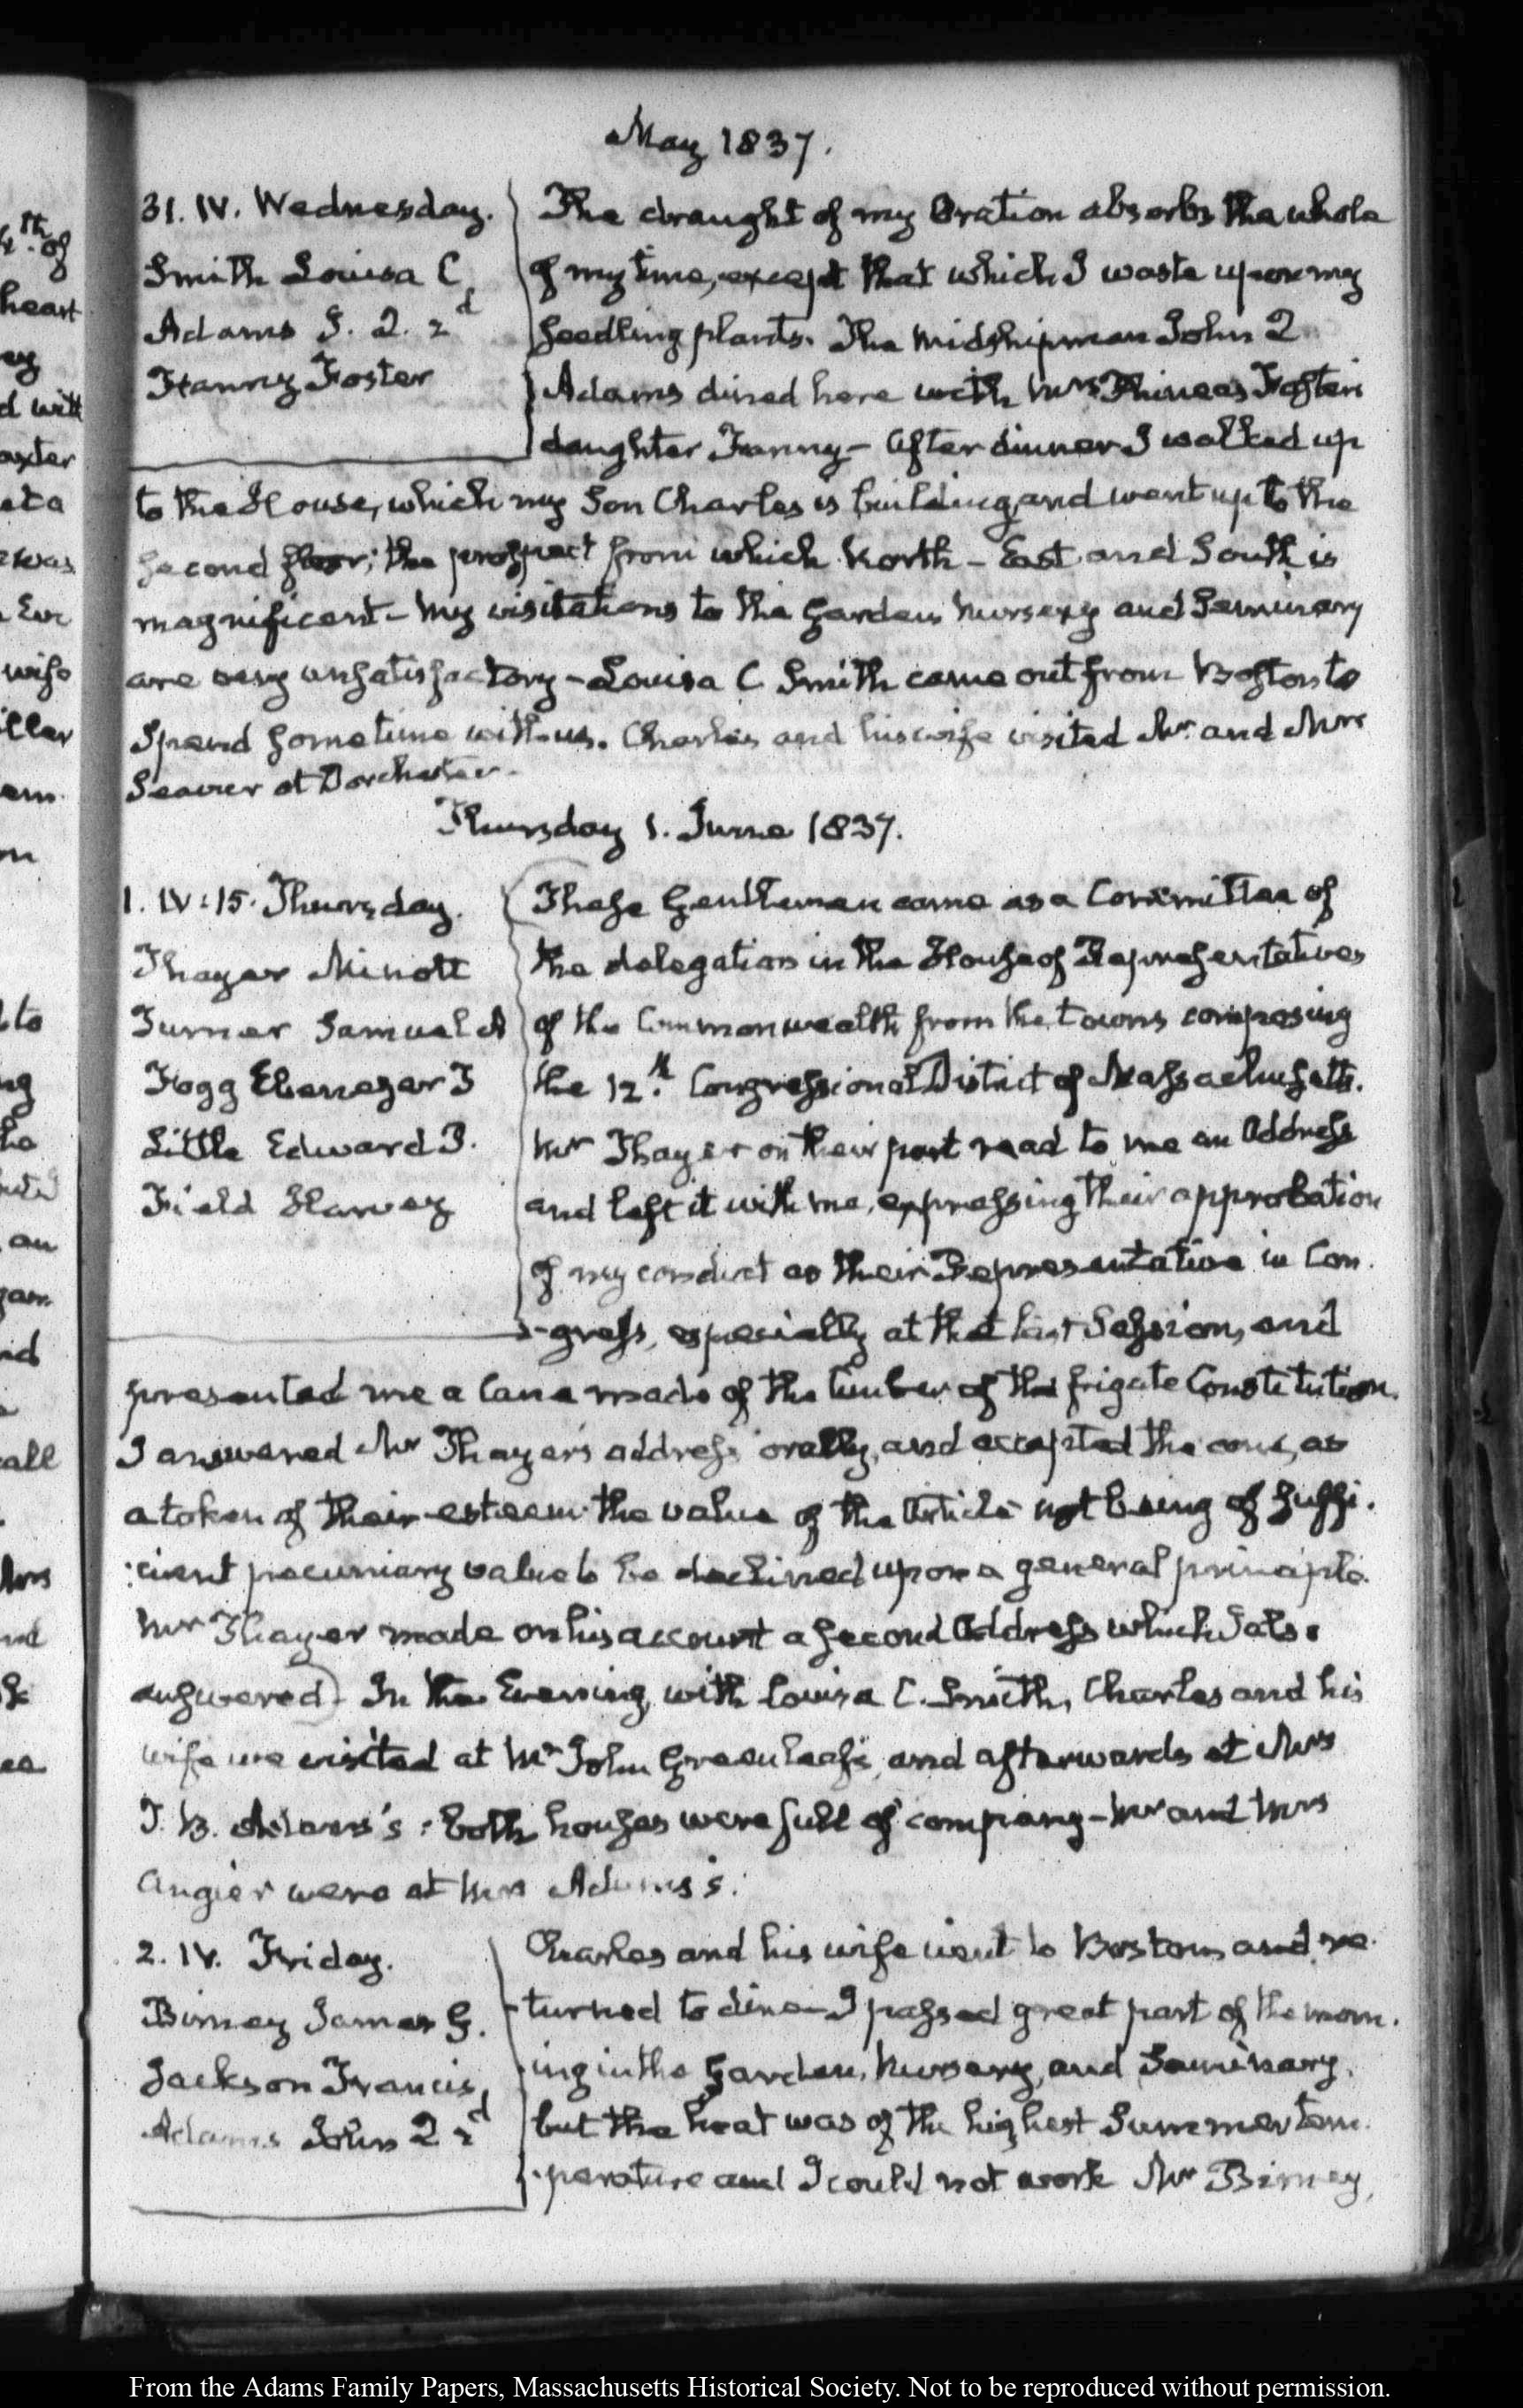 May 1837.
31. IV. Wednesday.
Smith Louisa C
Adams J. Q. 2d
Fanny Foster
The draught of my Oration absorbs the whole
of my time, except that which I waste upon my
seedling plants. The Midshipman John Q
Adams dined here with Mrs Phineas Foster's
daughter Fanny - After dinner I walked up
to the House, which my Son Charles is building, and went up to the
second floor; the prospect from which North - East and South is
magnificent - My visitations to the Garden Nursery and Seminary
are very unsatisfactory - Louisa C Smith came out from Boston to
spend some time with us. Charles and his wife visited Mr and Mrs
Seaver at Dorchester -
Thursday 1. June 1837.
1. IV:15. Thursday.
Thayer Minott
Turner Samuel A
Fogg Ebenezer T
Little Edward P.
Field Harvey
These Gentlemen came as a Committee of
the delegation in the House of Representatives
of the Commonwealth from the towns composing
the 12.th Congressional District of Massachusetts.
Mr Thayer on their part read to me an Address
and left it with me, expressing their approbation
of my conduct as their Representative in Con.
-gress, especially at the last Session, and
presented me a Cane made of the timber of the frigate Constitution.
I answered Mr Thayer's address orally, and accepted the cane, as
a token of their esteem the value of the Article not being of suffi.
:cient pecuniary value to be declined upon a general principle.
Mr Thayer made on his account a second Address which I also
answered) - In the Evening, with Louisa C. Smith, Charles and his
wife we visited at Mr John Greenleaf's, and afterwards at Mrs
T. B. Adams's: both houses were full of company - Mr and Mrs
Angier were at Mrs Adams's.
2. IV. Friday.
Birney James G.
Jackson Francis
Adams John Q 2d
Charles and his wife went to Boston, and re.
-turned to dine - I passed great part of the morn.
ing in the Garden, Nursery, and Seminary,
but the heat was of the highest Summer tem.
-perature and I could not work Mr Birney,
4th. of
heart
d with
axter
wife
to
an
all
From the Adams Family Papers, Massachusetts Historical Society. Not to be reproduced without permission.